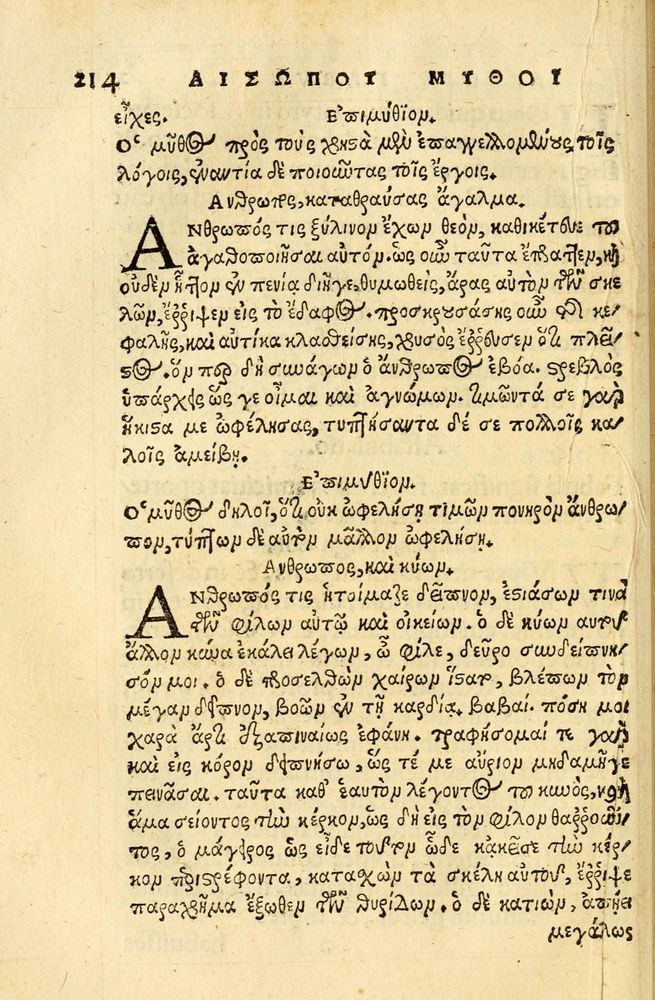 214 ΑΙΣΩΠΟΥ ΜΥΘΟΙ
εἶχες. Επιμύθιον.
Ο μῦθος πρὸς τοὺς χρηστὰ μὲν ἐπαγγελλομένους τοῖς
λόγοις, ἐναντία δὲ ποιοῦντας τοῖς ἔργοις.
Ανθρωπος, καταθραύσας ἄγαλμα.
Ανθρωπός τις ξύλινον ἔχων θεὸν, καθικέτευε τοῦ
ἀγαθοποιῆσαι αὐτόν. ὡς οὖν ταῦτα ἔπραττεν, καὶ
οὐδὲν ἧττον ἐν πενίᾳ διῆγε, θυμωθεὶς, ἄρας αὐτὸν τῶν σκε
λῶν, ἔῤῥιψεν εἰς τὸ ἔδαφος. προσκρουσάσης οὖν τῆς κε
φαλῆς, καὶ αὐτίκα κλασθείσης, χρυσὸς ἔῤῥευσεν ὅτι πλεῖ
στος. ὃν περ δὴ συνάγων ὁ ἄνθρωπος ἐβόα. στρεβλὸς
ὑπάρχεις ὥς γε οἶμαι καὶ ἀγνώμων. τιμῶντά σε γὰρ
ἥκιστα με ὠφέλησας, τυπτήσαντα δέ σε πολλοῖς κα/
λοῖς ἀμείβῃ.
Επιμύθιον.
Ο μῦθος δηλοῖ, ὅτι οὐκ ὠφελήσῃ τιμῶν πονηρὸν ἄνθρω/
πον, τύπτων δὲ αὐτὸν μᾶλλον ὠφελήσῃ.
Ανθρωπος, καὶ κύων.
Ανθρωπός τις ἡτοίμαζε δεῖπνον, ἑστιάσων τινὰ
τῶν φίλων αὐτῷ καὶ οἰκείων. ὁ δὲ κύων αὐτοῦ
ἄλλον κύνα ἐκάλει λέγων, ὦ φίλε, δεῦρο συνδείπνη/
σόν μοι. ὁ δὲ προσελθὼν χαίρων ἵστατ, βλέπων τὸν
μέγαν δεῖπνον, βοῶν ἐν τῇ καρδίᾳ. βαβαὶ. πόση μοι
χαρὰ ἄρτι ἐξαπιναίως ἐφάνη. τραφήσομαι τε γὰρ
καὶ εἰς κόρον δειπνήσω, ὥς τέ με αὔριον μηδαμῆ γε
πεινᾶσαι. ταῦτα καθ᾽ ἑαυτὸν λέγοντος τοῦ κυνὸς, καὶ
ἅμα σείοντος τὴν κέρκον, ὡς δὴ εἰς τὸν φίλον θαῤῥοῦν/
τος, ὁ μάγειρος ὡς εἶδε τοῦτον ὧδε κἀκεῖσε τὴν κέρ/
κον περιστρέφοντα, καταχὼν τὰ σκέλη αὐτοῦ, ἔῤῥιψε
παραχρῆμα ἔξωθεν τῶν θυρίδων. ὁ δὲ κατιὼν, ἀπῄει
μεγάλως